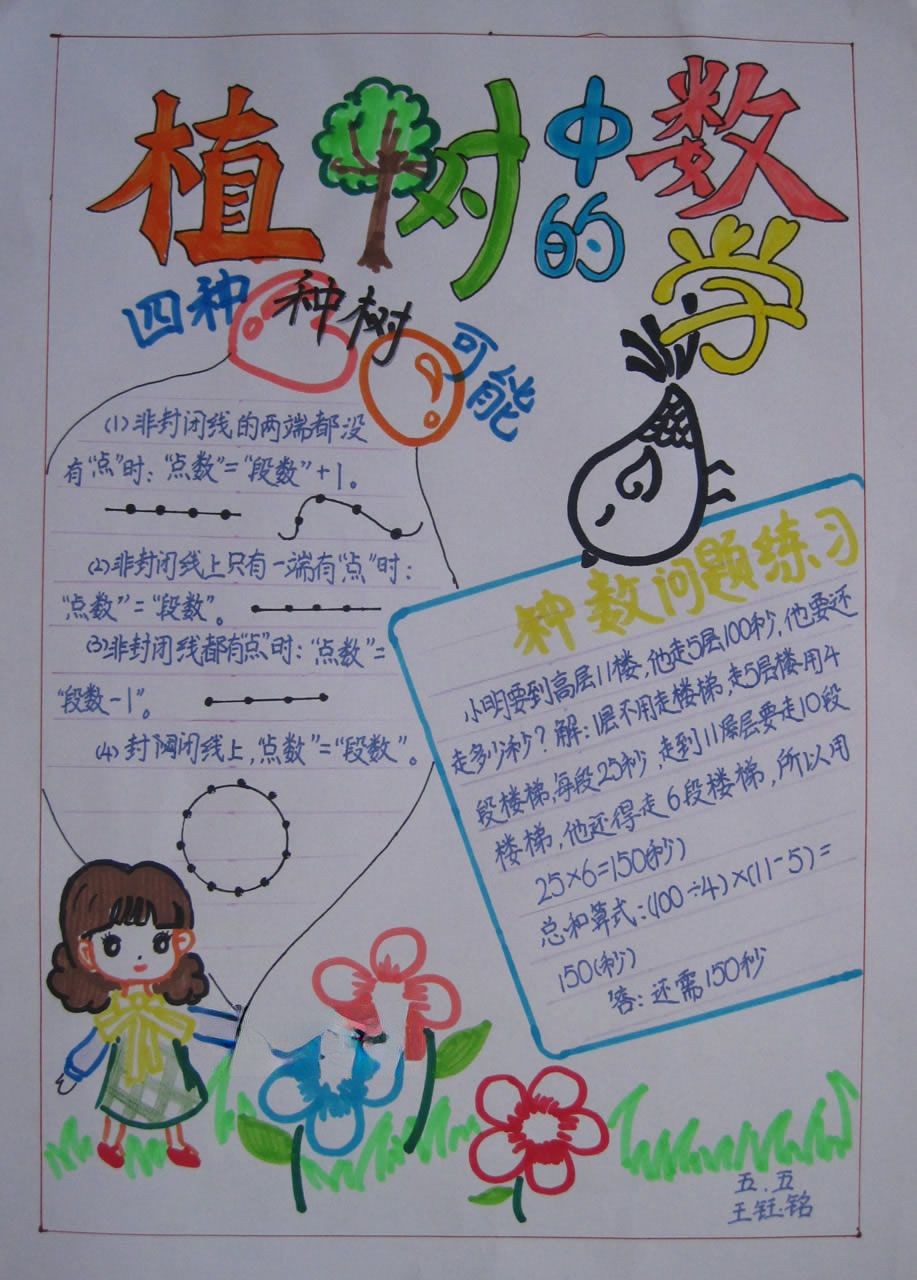 植树中的数学
四种种树可能
(1)非封闭线的两端都没
有“点”时：“点数”=“段数”+1。
(2)非封闭线上只有一端有“点”时：
“点数”=“段数”。
(3)非封闭线都有“点”时：“点数”=
“段数-1”。
(4)封闭线上，“点数”=“段数”。
种数问题练习
小明要到高层11楼，他走5层100秒，他要还
走多少秒？解：1层不用走楼梯，走5层楼用4
段楼梯，每段25秒，走到11层要走10段
楼梯，他还得走6段楼梯，所以用
25×6=150(秒)
总和算式：(100÷4)×(11-5)=
150(秒)
答：还需150秒
五.五
王钰铭